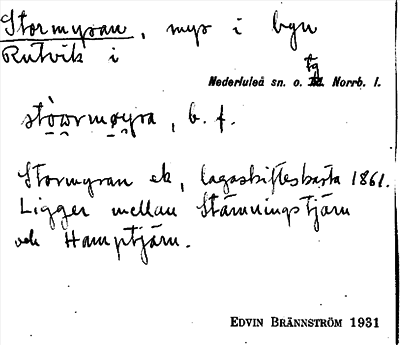 Stormyran, myr i byn
Rutvik i
tg
Nederluleå sn. o. Norrb. l.
b. f.
Stormyran ek, lagaskifteskarta 1861.
Ligger mellan Stämningstjärn
och Hamptjärn.
EDVIN BRÄNNSTRÖM 1931